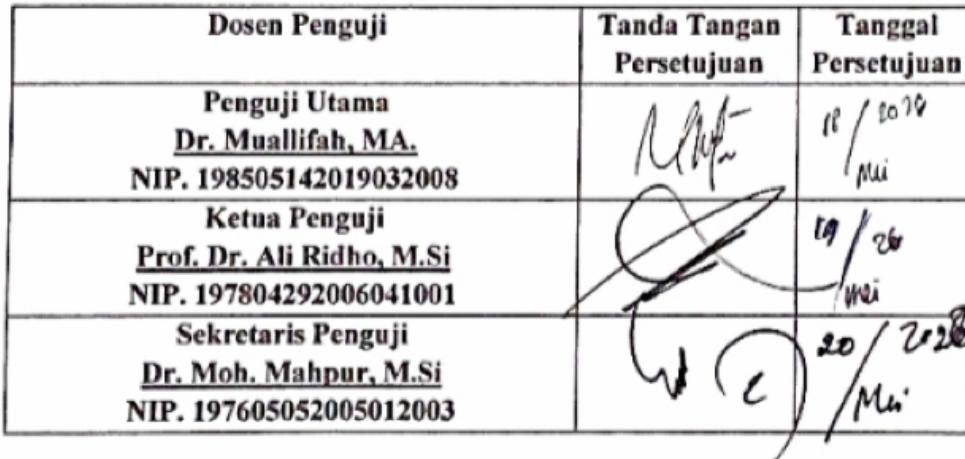 Dosen Penguji
Tanda Tangan
Persetujuan
Tanggal
Persetujuan
Penguji Utama
Dr. Muallifah, MA.
NIP. 198505142019032008
18 /
Mei
Ketua Penguji
Prof. Dr. Ali Ridho, M.Si
NIP. 197804292006041001
19 / 26
Mei
Sekretaris Penguji
Dr. Moh. Mahpur, M.Si
NIP. 197605052005012003
20 /
Mei